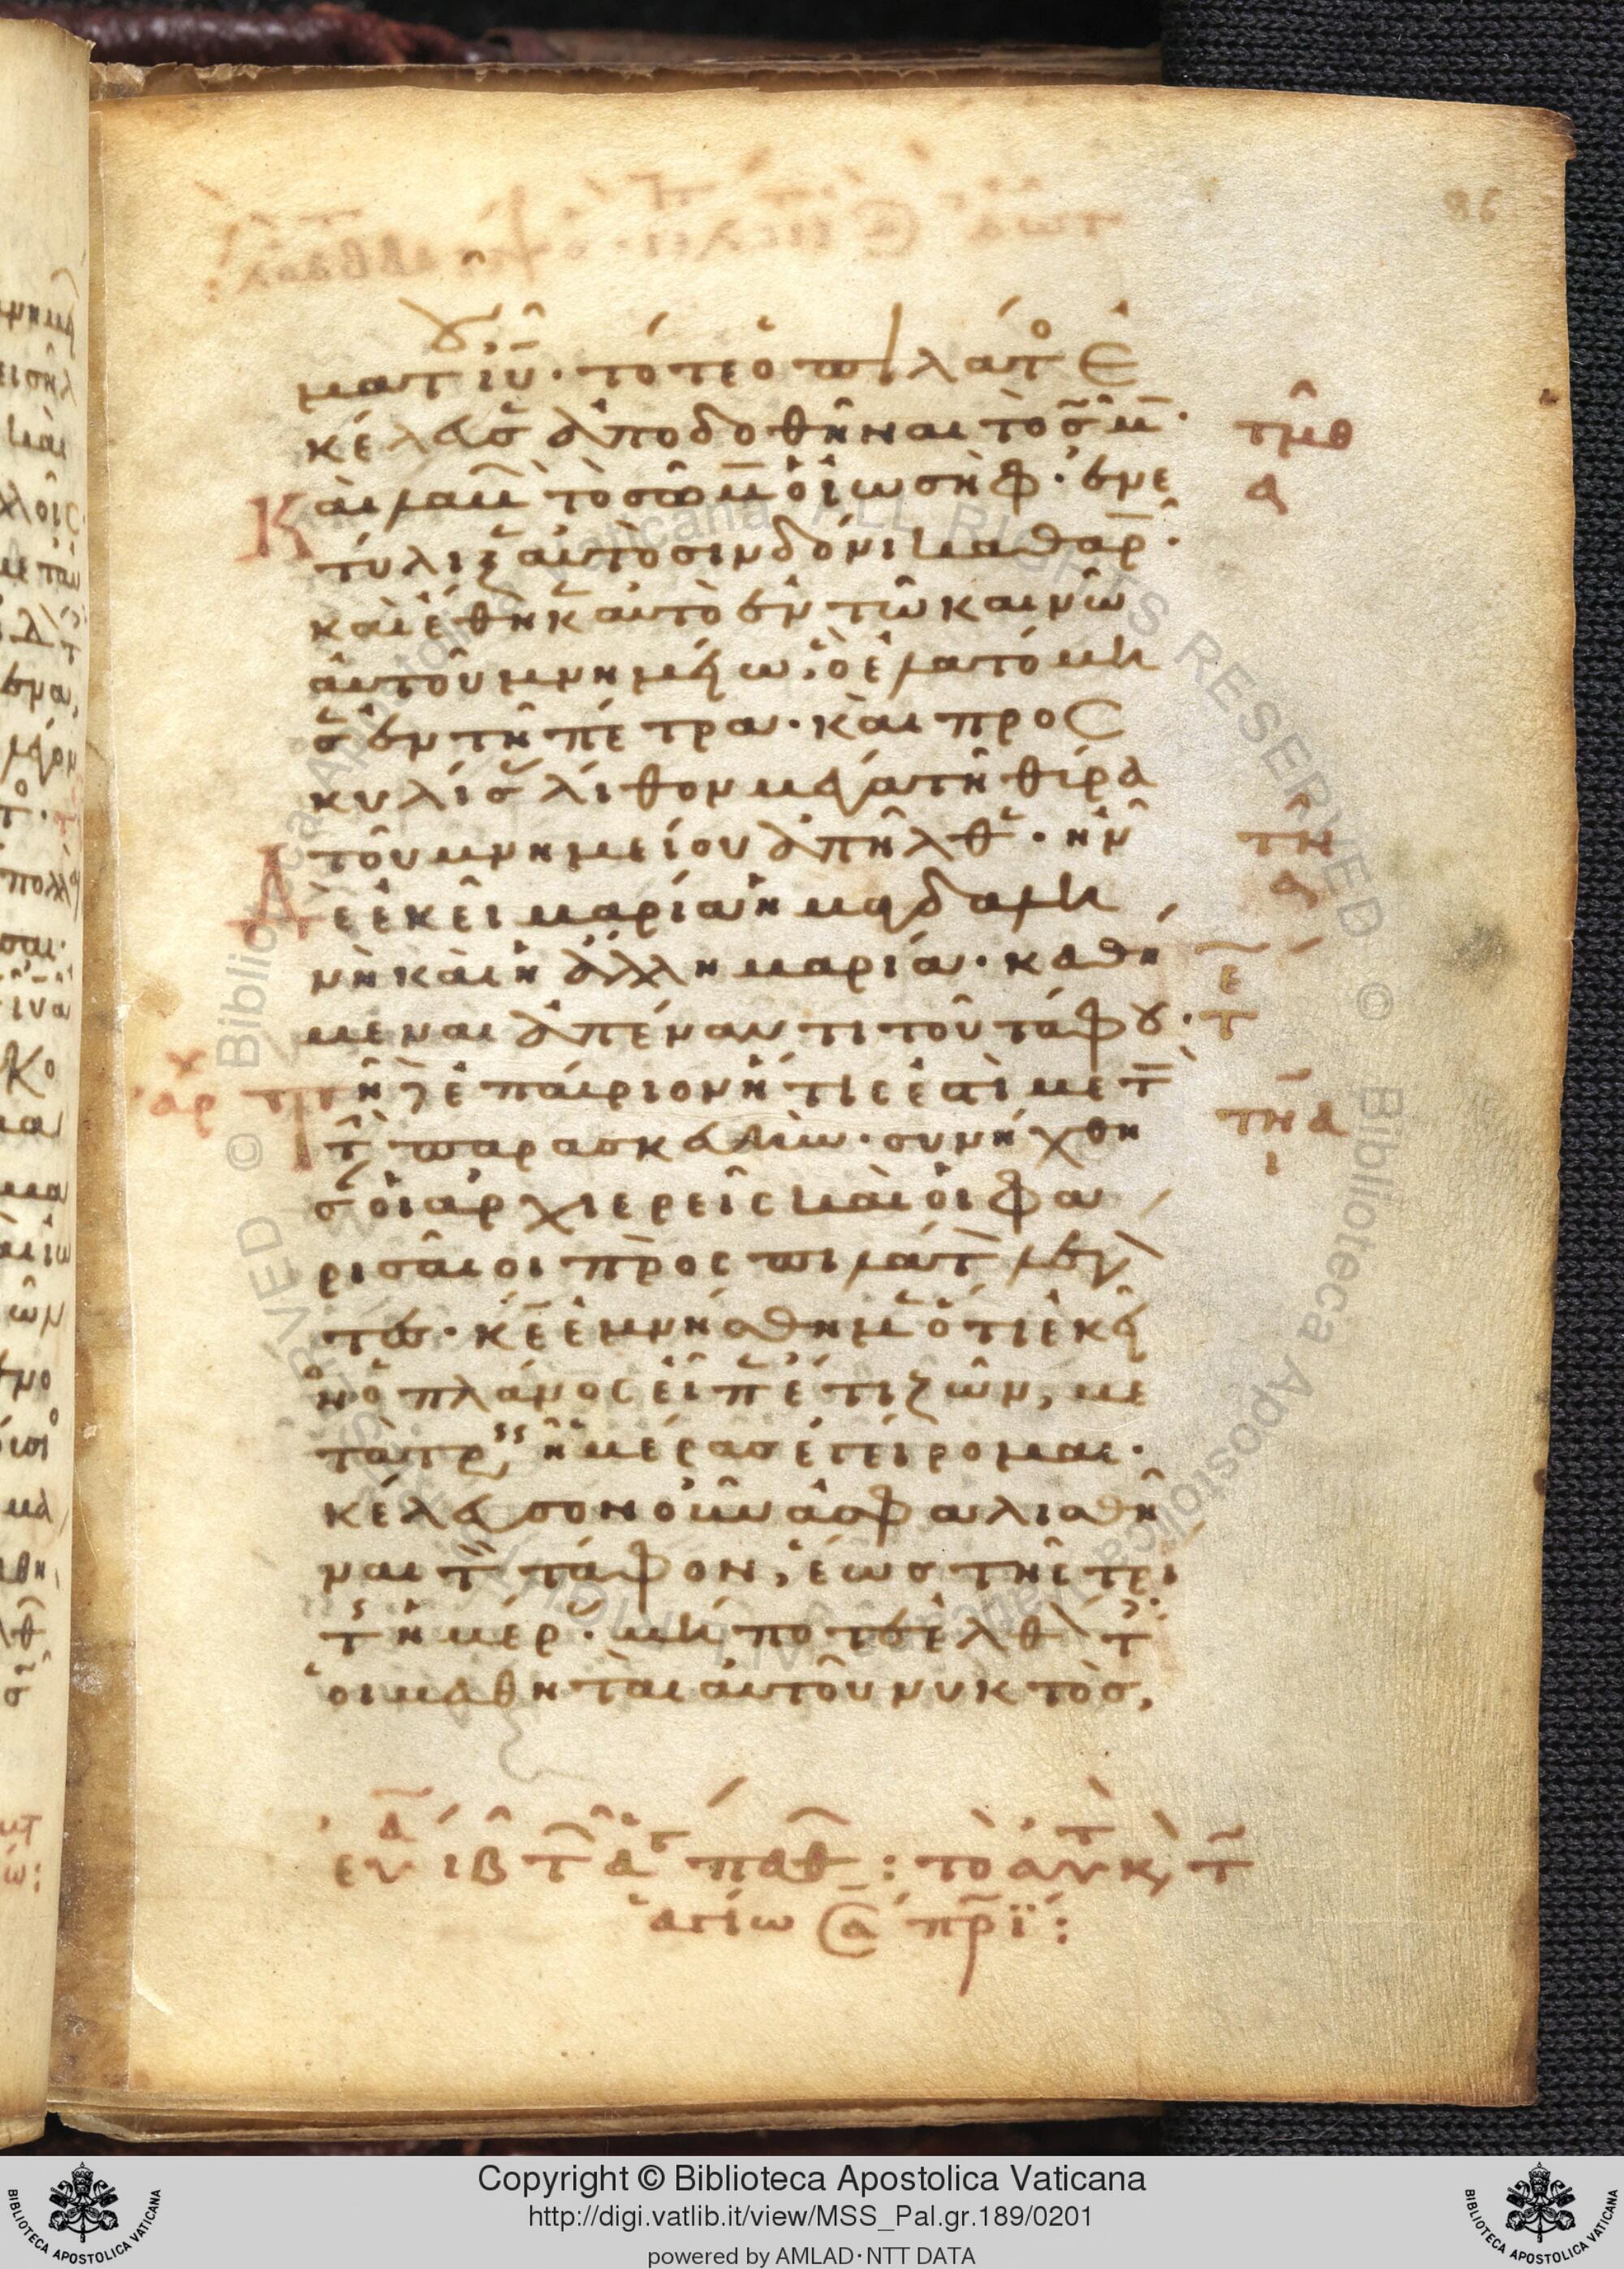 86
ματ ιυ̅· τότε ὁ πιλάτος ἐ
κέλευσ ἀποδοθῆναι τὸ σῶμ·
καὶ λαβ τὸ σῶμ ὁ ἰωσὴφ· ἐνε
τύλιξ αὐτὸ σινδόνι καθαρ·
καὶ ἔθηκ αὐτὸ ἐν τῶ καινῶ
αὐτοῦ μνημείω, ὃ ἐλατόμη
σ ἐν τῆ πέτρα· καὶ προσ
κυλίσ λίθον μέγα τῆ θύρα
τοῦ μνημείου ἀπῆλθ· ἦν
Δὲ ἐκεῖ μαρία ἡ μαγδαλη
νὴ καὶ ἡ ἄλλη μαρία· καθή
μεναι ἀπέναντι τοῦ τάφου·
Τῆ δὲ ἐπαύριον ἥτις ἐστὶ μετ
τ παρασκευὴν· συνήχθη
σ οἱ ἀρχιερεῖς καὶ οἱ φα
ρισαῖοι πρὸς πιλάτ λέγον
τες· κε̅ ἐμνήσθημ ὅτι ἐκεῖ
ν ὁ πλάνος εἶπ ἔτι ζῶν, με
τὰ τρεῖς ἡμέρας ἐγείρομαι·
κέλευσον οὖν ἀσφαλισθῆ
ναι τ τάφον, ἕως τῆς τρί
τ ἡμέρ· μήποτε ἐλθόντ
οἱ μαθηταὶ αὐτοῦ νυκτὸς,
τμθ
α
τν
τνα
ι
Copyright © Biblioteca Apostolica Vaticana
http://digi.vatlib.it/view/MSS_Pal.gr.189/0201
powered by AMLAD·NTT DATA
BIBLIOTECA APOSTOLICA VATICANA
BIBLIOTECA APOSTOLICA VATICANA